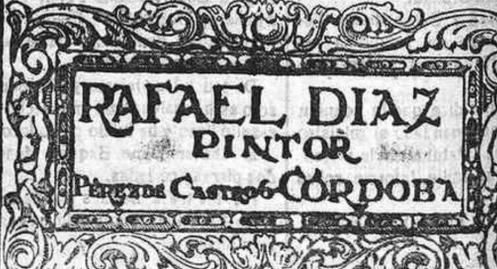 RAFAEL DIAZ
PINTOR
PÉREZ DE CASTRO 6 CÓRDOBA